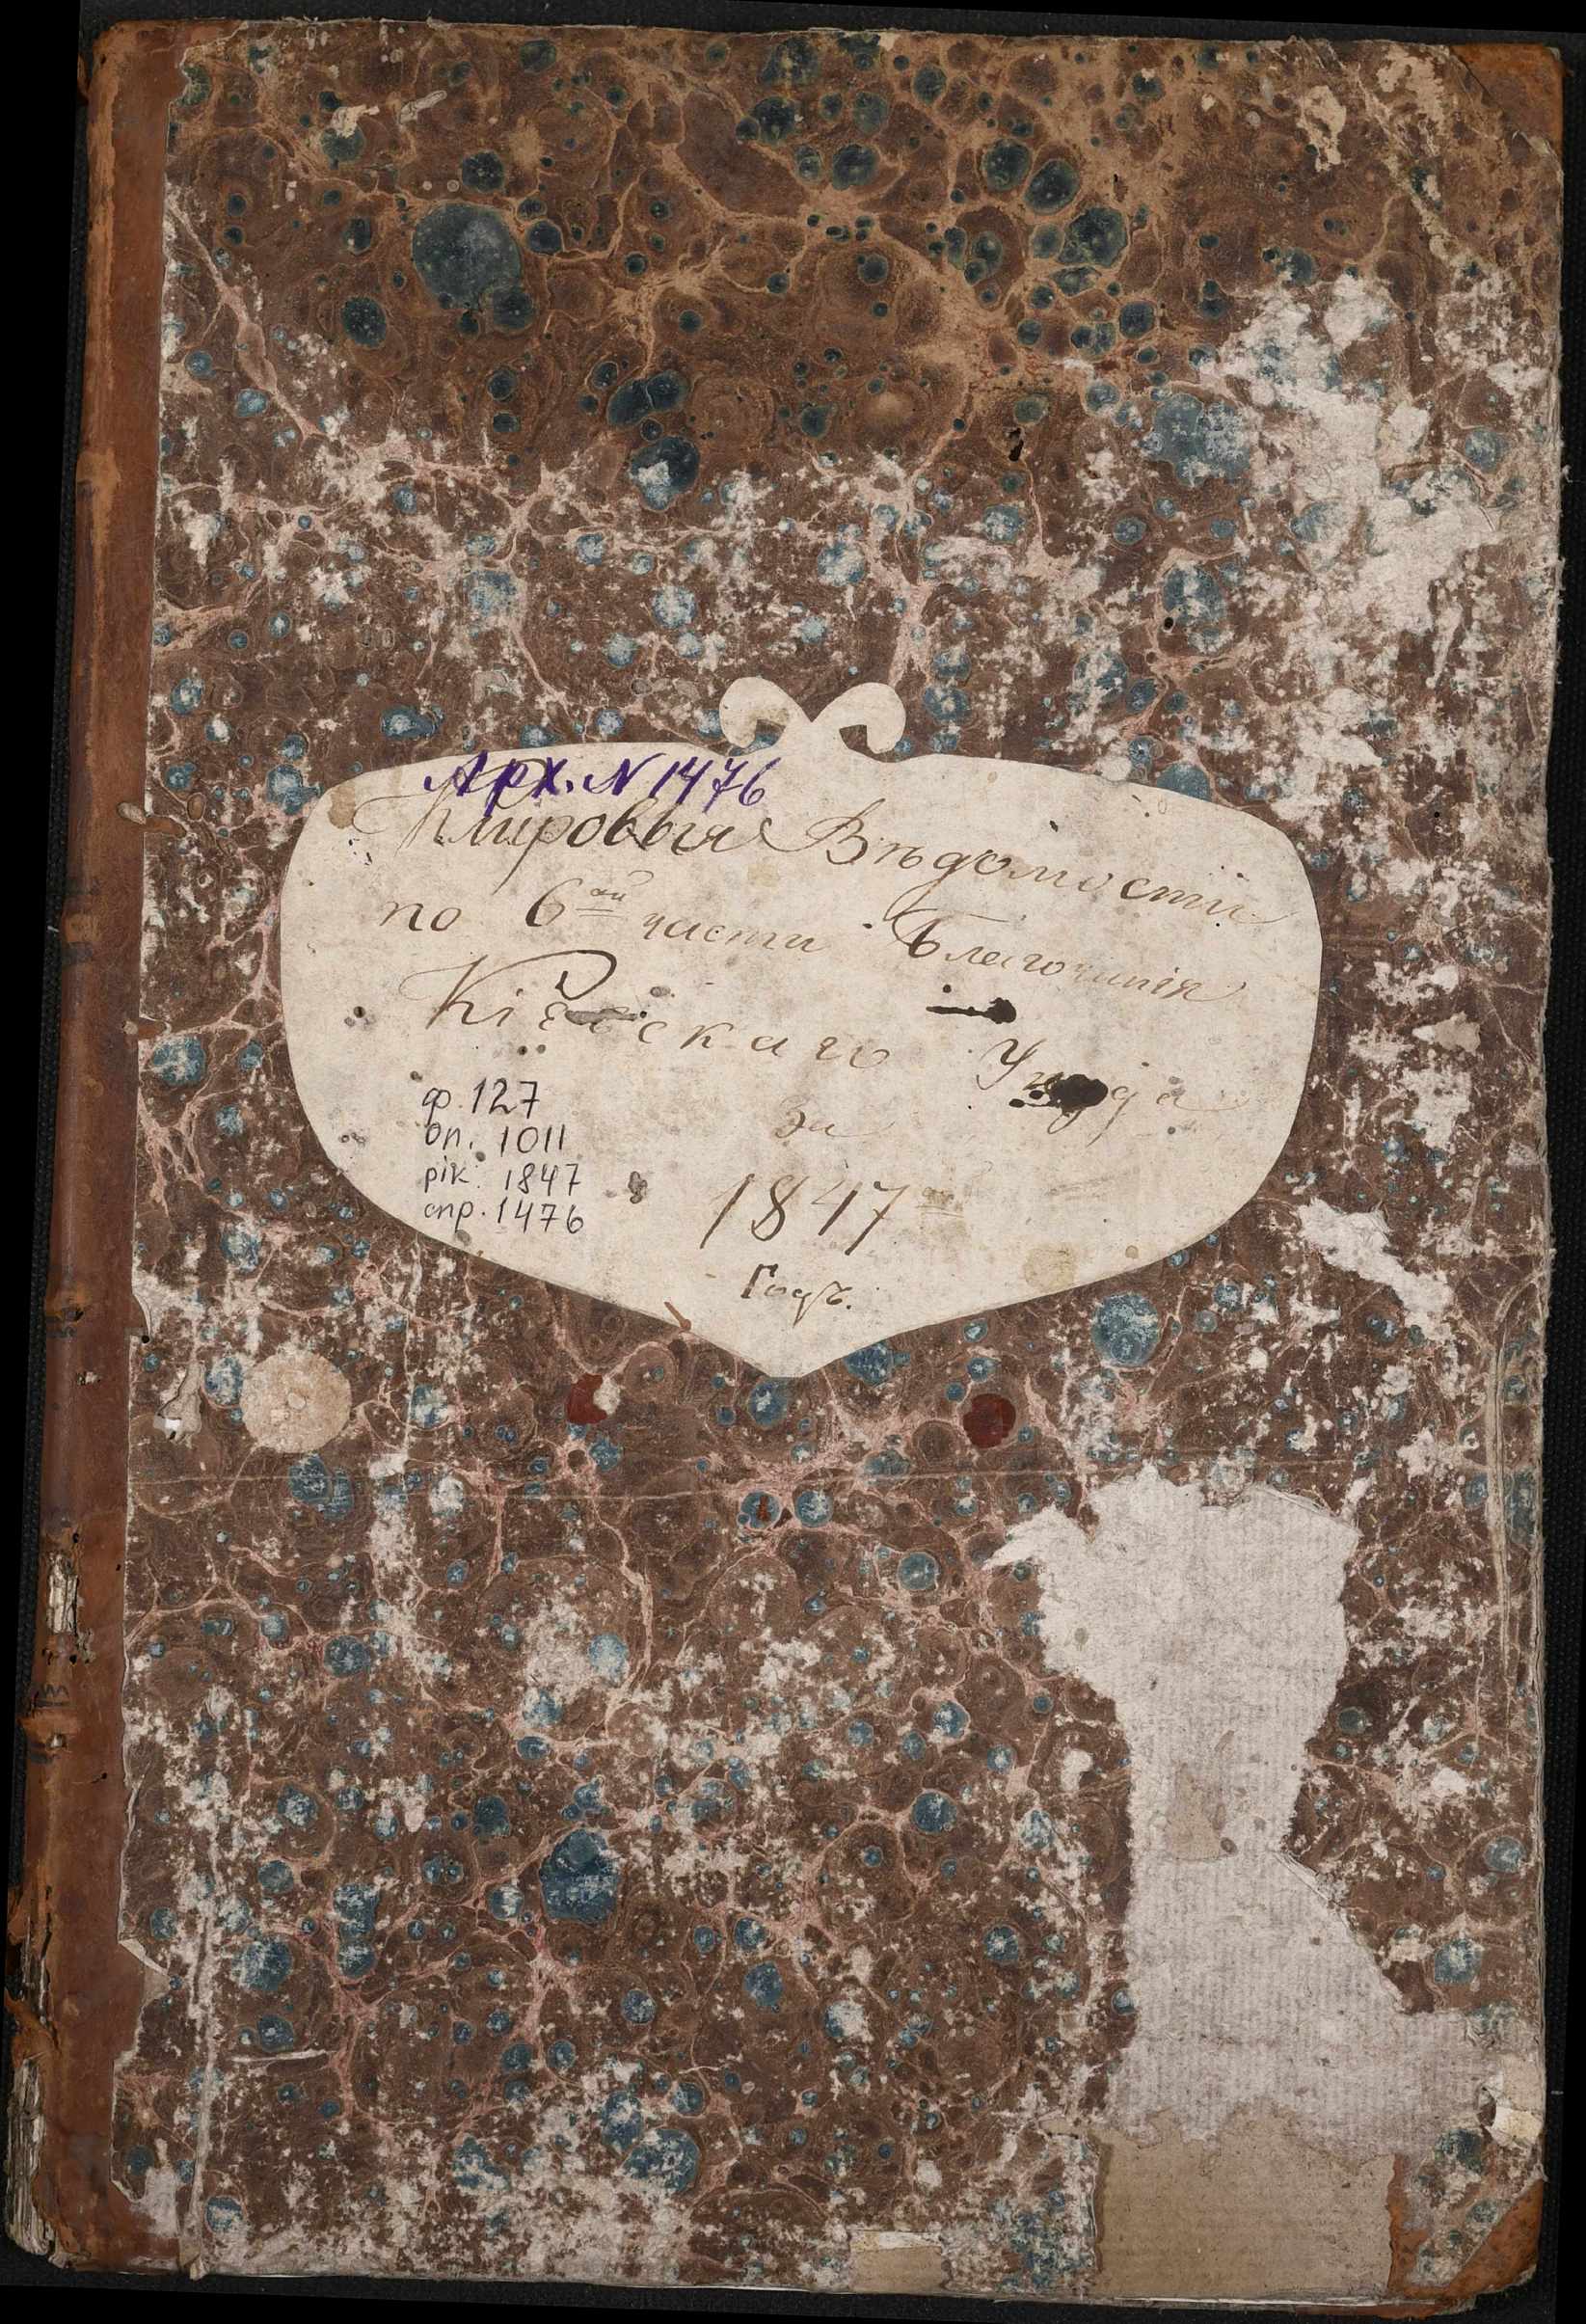 Арх. N 1476
Клировыя Вѣдомости
по 6ой части Благочинія
Кіевскаго Уѣзда
за
1847
Годъ.
ф. 127
оп. 1011
рік. 1847
спр. 1476